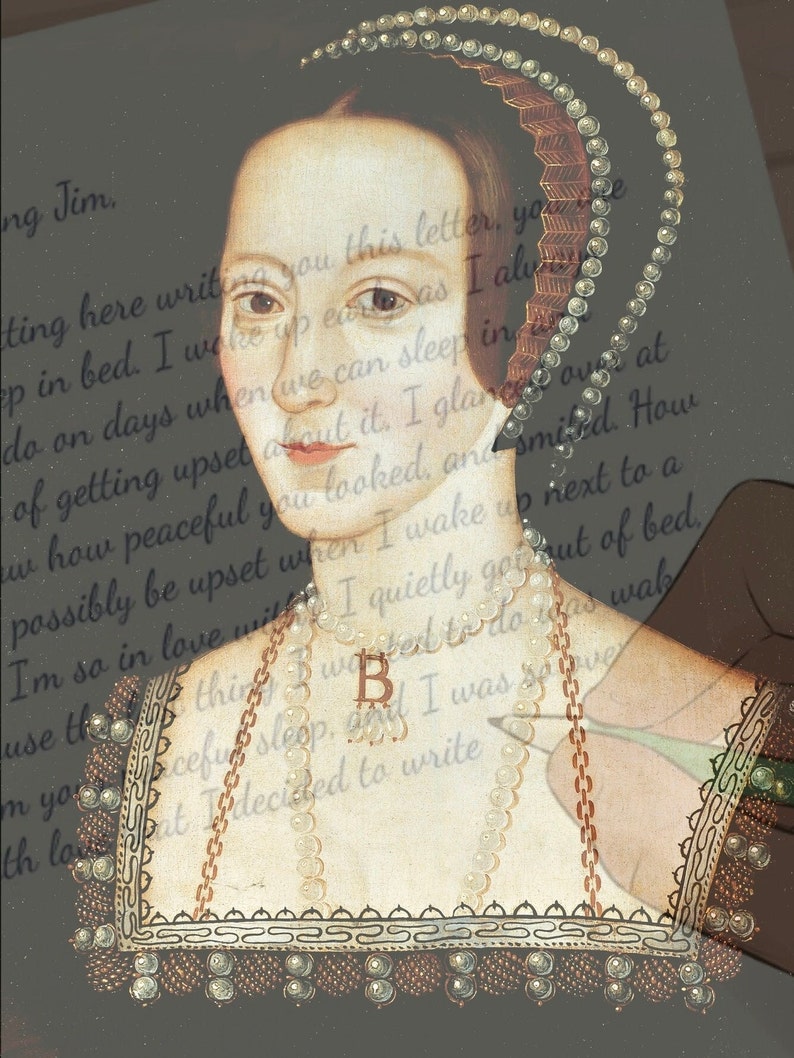 ng Jim,
tting here writing you this letter, you are
ep in bed. I wake up early as I always
do on days when we can sleep in,
of getting upset about it. I glanced over at
aw how peaceful you looked, and smiled. How
possibly be upset when I wake up next to a
Im so in love with. I quietly got out of bed,
B
ause the last thing I wanted to do was wak
m your peaceful sleep, and I was so over
th love that I decided to write